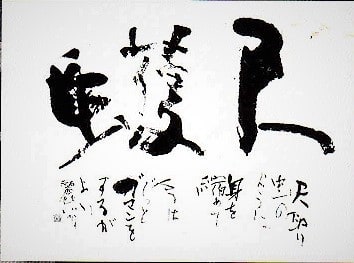 尺蠖
尺取り
虫の
身を
縮めて
今は
じっと
ガマンを
するが
よい